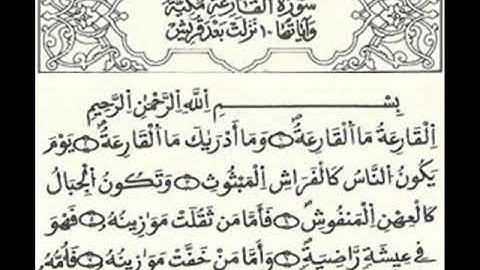 سُورَةُ الْقَارِعَةِ مَكِّيَّة
وَآيَاتُهَا ١٠ نَزَلَتْ بَعْدَ قُرَيْش
بِسْمِ اِ۬للَّهِ اِ۬لرَّحْمَٰنِ اِ۬لرَّحِيمِ
اِ۬لْقَارِعَةُ مَا اَ۬لْقَارِعَةُ ۝ وَمَا أَدْرَىٰكَ مَا اَ۬لْقَارِعَةُ ۝ يَوْمَ
يَكُونُ اُ۬لنَّاسُ كَالْفَرَاشِ اِ۬لْمَبْثُوثِ ۝ وَتَكُونُ اُ۬لْجِبَالُ
كَالْعِهْنِ اِ۬لْمَنفُوشِ ۝ فَأَمَّا مَن ثَقُلَتْ مَوَٰزِينُهُ ۝ فَهُوَ
فِي عِيشَةٍ رَّاضِيَةٍ ۝ وَأَمَّا مَنْ خَفَّتْ مَوَٰزِينُهُ ۝ فَأُمُّهُ